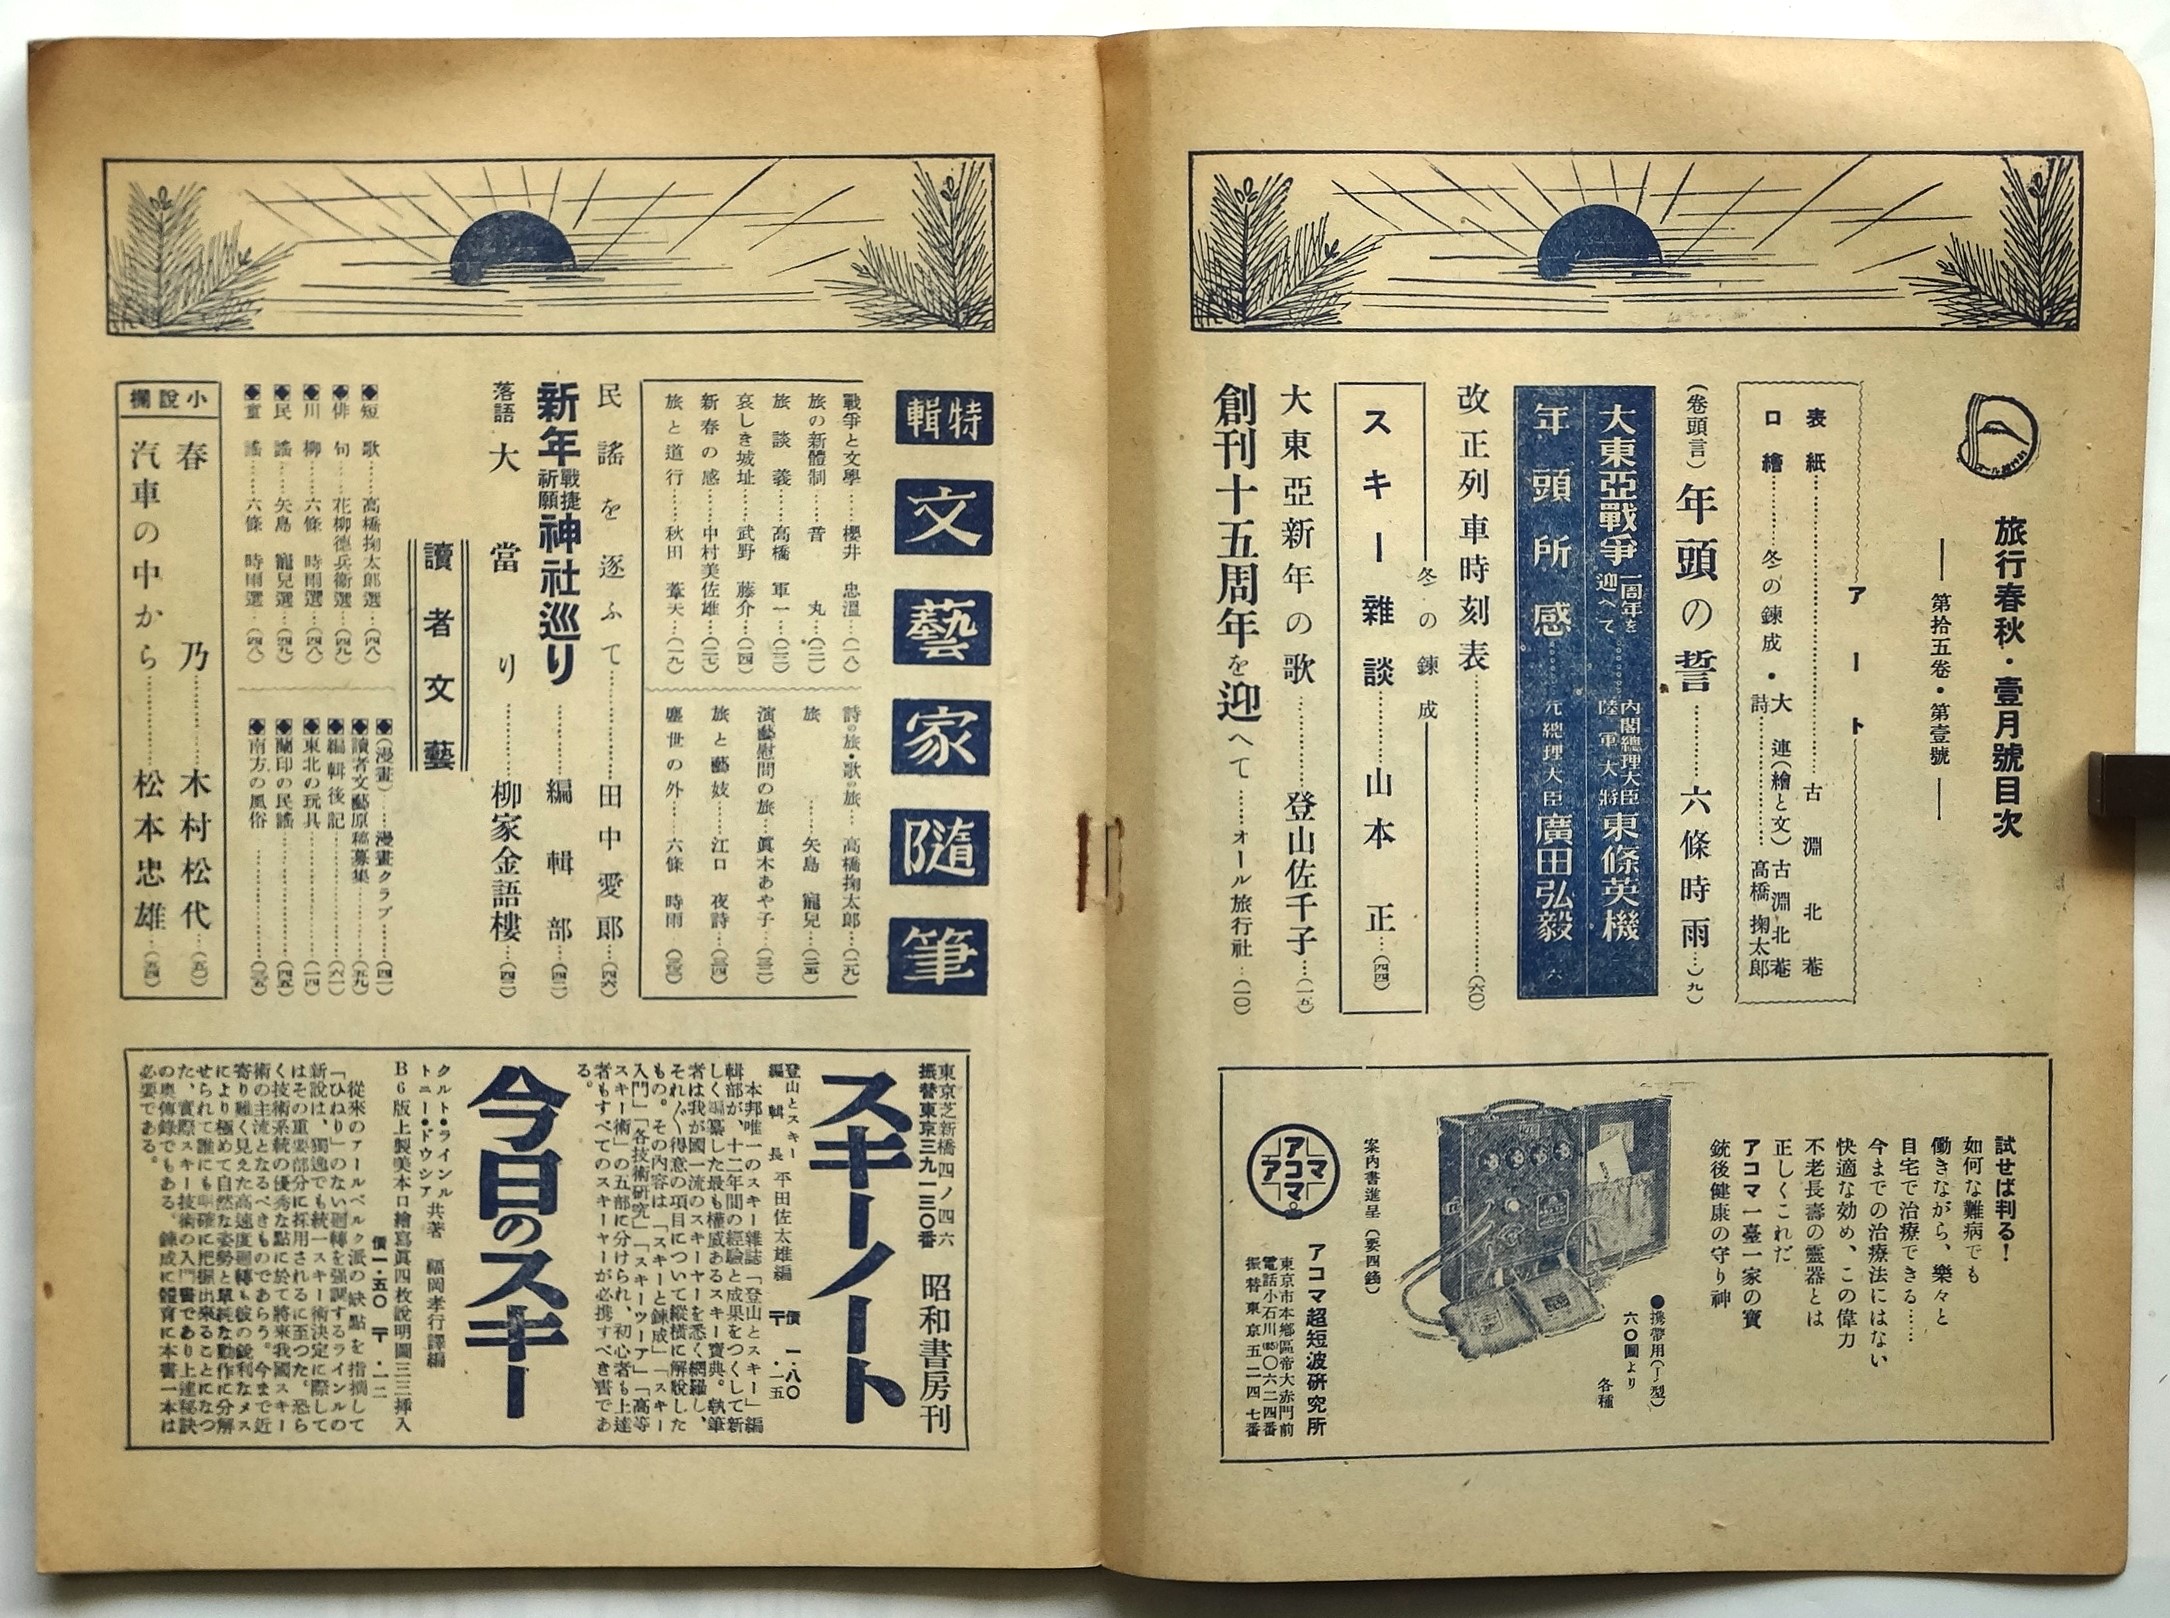 旅行春秋・壹月號目次
― 第拾五卷・第壹號 ―
アート
表紙……古淵北菴
口繪……冬の錬成・大連(繪と文)古淵北菴
詩……高橋掬太郎
(卷頭言)年頭の誓……六條時雨…(九)
大東亞戰爭一周年を迎へて……內閣總理大臣陸軍大將東條英機
年頭所感……元總理大臣廣田弘毅 六
改正列車時刻表……(六〇)
冬の錬成
スキー雜談……山本正…(四四)
大東亞新年の歌……登山佐千子…(一五)
創刊十五周年を迎へて……オール旅行社…(一〇)
試せば判る!
如何な難病でも
働きながら、樂々と
自宅で治療できる……
今までの治療法にはない
快適な効め、この偉力
不老長壽の靈器とは
正しくこれだ
アコマ一臺一家の寶
銃後健康の守り神
●携帶用(I型)
六〇圓より
各種
案內書進呈(要四錢)
アコマ
アコマ
アコマ超短波硏究所
東京市本鄕區帝大赤門前
電話小石川(85)〇六二四番
振替東京五二四七番
特輯
文藝家隨筆
戰爭と文學……櫻井忠溫…(一八)
旅の新體制……音丸…(二一)
旅談義……高橋軍一…(二三)
哀しき城址……武野藤介…(二四)
新春の感……中村美佐雄…(二七)
旅と道行……秋田葦天…(一九)
詩の旅・歌の旅…高橋掬太郎…(二九)
旅……矢島寵兒…(二五)
演藝慰問の旅…眞木あや子…(三二)
旅と藝妓……江口夜詩…(三四)
塵世の外……六條時雨(三三)
民謠を逐ふて……田中愛郞…(四六)
新年戰捷祈願神社巡り……編輯部…(四二)
落語 大當り……柳家金語樓…(四二)
讀者文藝
◆短歌……高橋掬太郎選…(四八)
◆俳句……花柳德兵衞選…(四九)
◆川柳……六條時雨選…(四八)
◆民謠……矢島寵兒選…(四九)
◆童謠……六條時雨選…(四八)
◆(漫畫)……漫畫クラブ…(四一)
◆讀者文藝原稿募集……(五九)
◆編輯後記……(六一)
◆東北の玩具……(一四)
◆蘭印の民謠……(四五)
◆南方の風俗……(三五)
小說欄
春乃……木村松代…(五〇)
汽車の中から……松本忠雄…(五四)
東京芝新橋四ノ四六
振替東京三九一三〇番
昭和書房刊
スキーノート
登山とスキー
編輯長 平田佐太雄編
價 一・八〇
〒 ・一五
本邦唯一のスキー雜誌「登山とスキー」編
輯部が、十二年間の經驗と成果をつくして新
しく編纂した最も權威あるスキー寶典。執筆
者は我が國一流のスキーヤーを悉く網羅し、
それ〴〵得意の項目について縱橫に解說した
もの。その內容は「スキーと錬成」「スキー
入門」「各技術硏究」「スキーツーア」「高等
スキー術」の五部に分けられ、初心者も上達
者もすべてのスキーヤーが必携すべき書であ
る。
今日のスキー
クルト・ラインル
トニー・ドウシア 共著 福岡孝行譯編
B6版上製美本口繪寫眞四枚說明圖三三揷入
價一・五〇 〒・一二
從來のアールベルク派の缺點を指摘して
「ひねり」のない廻轉を强調するラインルの
新說は、獨逸でも統一スキー術決定に際して
はその重要部分に採用されるに至つた。恐ら
く技術系統の優秀な點に於て將來我國スキー
術の主流となるべきものであらう。今まで近
寄り難く見えた高速度廻轉も彼の銳利なメス
により極めて自然な姿勢と單純な動作に分解
せられて誰にも明確に把握出來ることになつ
た、實際スキー技術の入門書であり上達秘訣
の奧傳錄でもある。錬成に體育に本書一本は
必要である。